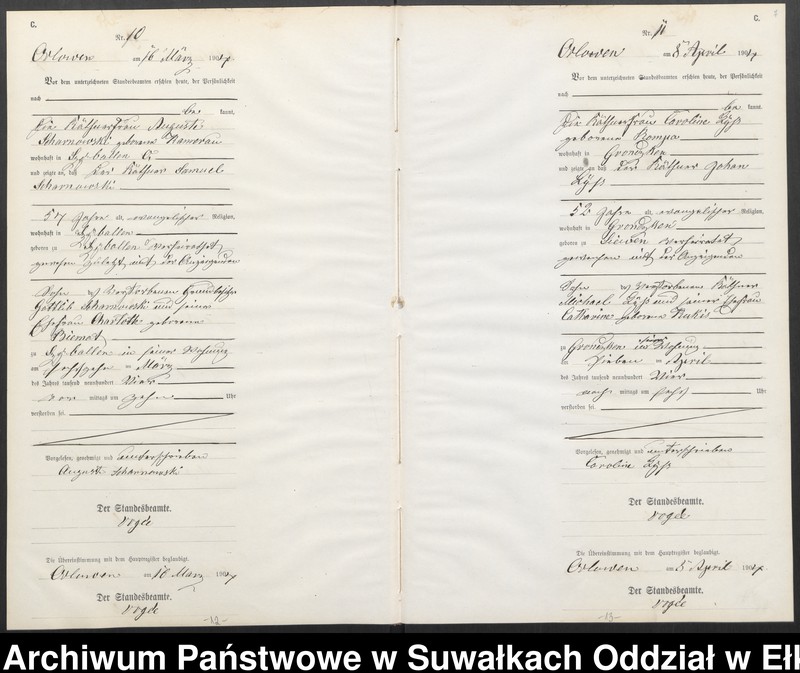 C.
Nr. 10
Orlowen am 16 März 1904
Vor dem unterzeichneten Standesbeamten erschien heute, der Persönlichkeit
nach
be kannt,
die Käthnerfrau Auguste
Scharnowski geborene
wohnhaft in
und zeigte an, daß der Käthner Samuel
Scharnowski
57 Jahre alt, evangelischer Religion,
wohnhaft in
geboren zu verheirathet
gewesen zuletzt mit der Anzeigenden
Sohn des verstorbenen
Gottlieb Scharnowski und seiner
Ehefrau Charlotte geborene
zu in seiner Wohnung
am März
des Jahres tausend neunhundert vier
vor mittags um zehn Uhr
verstorben sei.
Vorgelesen, genehmigt und unterschrieben
Auguste Scharnowski
Der Standesbeamte.
Vogde
Die Übereinstimmung mit dem Hauptregister beglaubigt.
Orlowen am 16 März 1904
Der Standesbeamte.
Vogde
-12-
C.
7
Nr. 11
Orlowen am 8 April 1904
Vor dem unterzeichneten Standesbeamten erschien heute, der Persönlichkeit
nach
be kannt,
die Käthnerfrau Caroline
geborene
wohnhaft in Grondzken
und zeigte an, daß der Käthner Johan
52 Jahre alt, evangelischer Religion,
wohnhaft in Grondzken
geboren zu Siewen verheirathet
gewesen mit der Anzeigenden
Sohn des verstorbenen Käthner
Michael und seiner Ehefrau
Catharine geborene
zu Grondzken in seiner Wohnung
am sieben April
des Jahres tausend neunhundert vier
nach mittags um sechs Uhr
verstorben sei.
Vorgelesen, genehmigt und unterschrieben
Caroline
Der Standesbeamte.
Vogde
Die Übereinstimmung mit dem Hauptregister beglaubigt.
Orlowen am 8 April 1904
Der Standesbeamte.
Vogde
-13-
Archiwum Państwowe w Suwałkach Oddział w Ełk